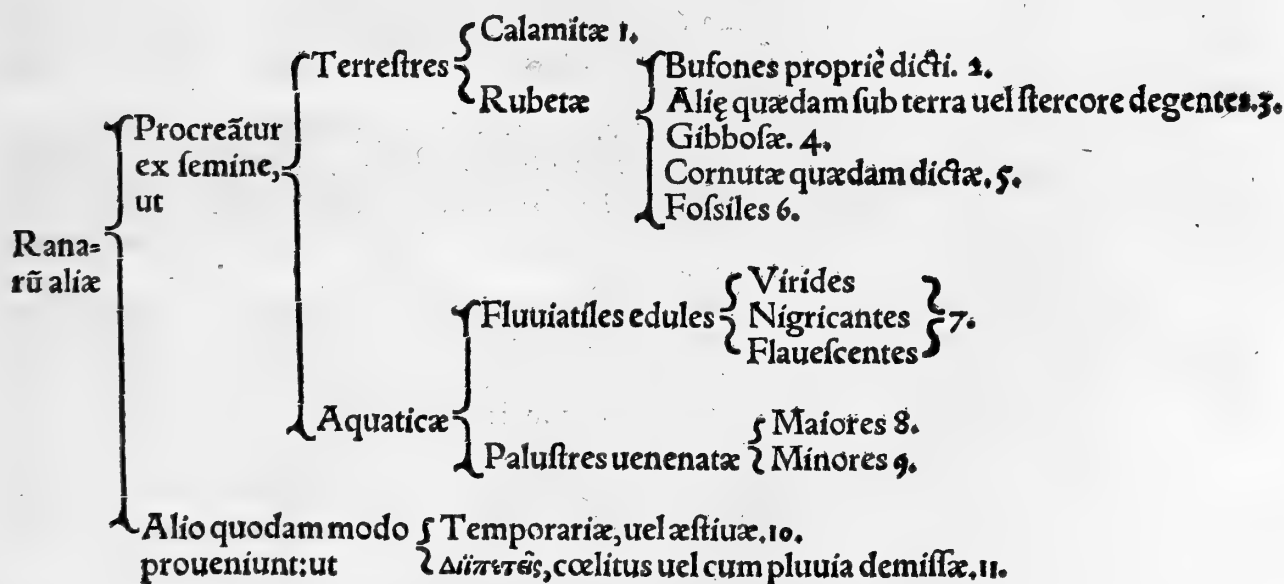 Rana=
rũ aliæ
Procreãtur
ex ſemine,
ut
Terreſtres
Calamitæ 1.
Rubetæ
Bufones propriè dicti. 2.
Alię quædam ſub terra uel ſtercore degentes. 3.
Gibboſæ. 4.
Cornutæ quædam dictæ. 5.
Foſsiles 6.
Aquaticæ
Fluuiatiles edules
Virides
Nigricantes
Flaueſcentes
7.
Paluſtres uenenatæ
Maiores 8.
Minores 9.
Alio quodam modo
proueniunt: ut
Temporariæ, uel æſtiuæ. 10.
Διϊπετεῖς, cœlitus uel cum pluuia demiſſæ. 11.